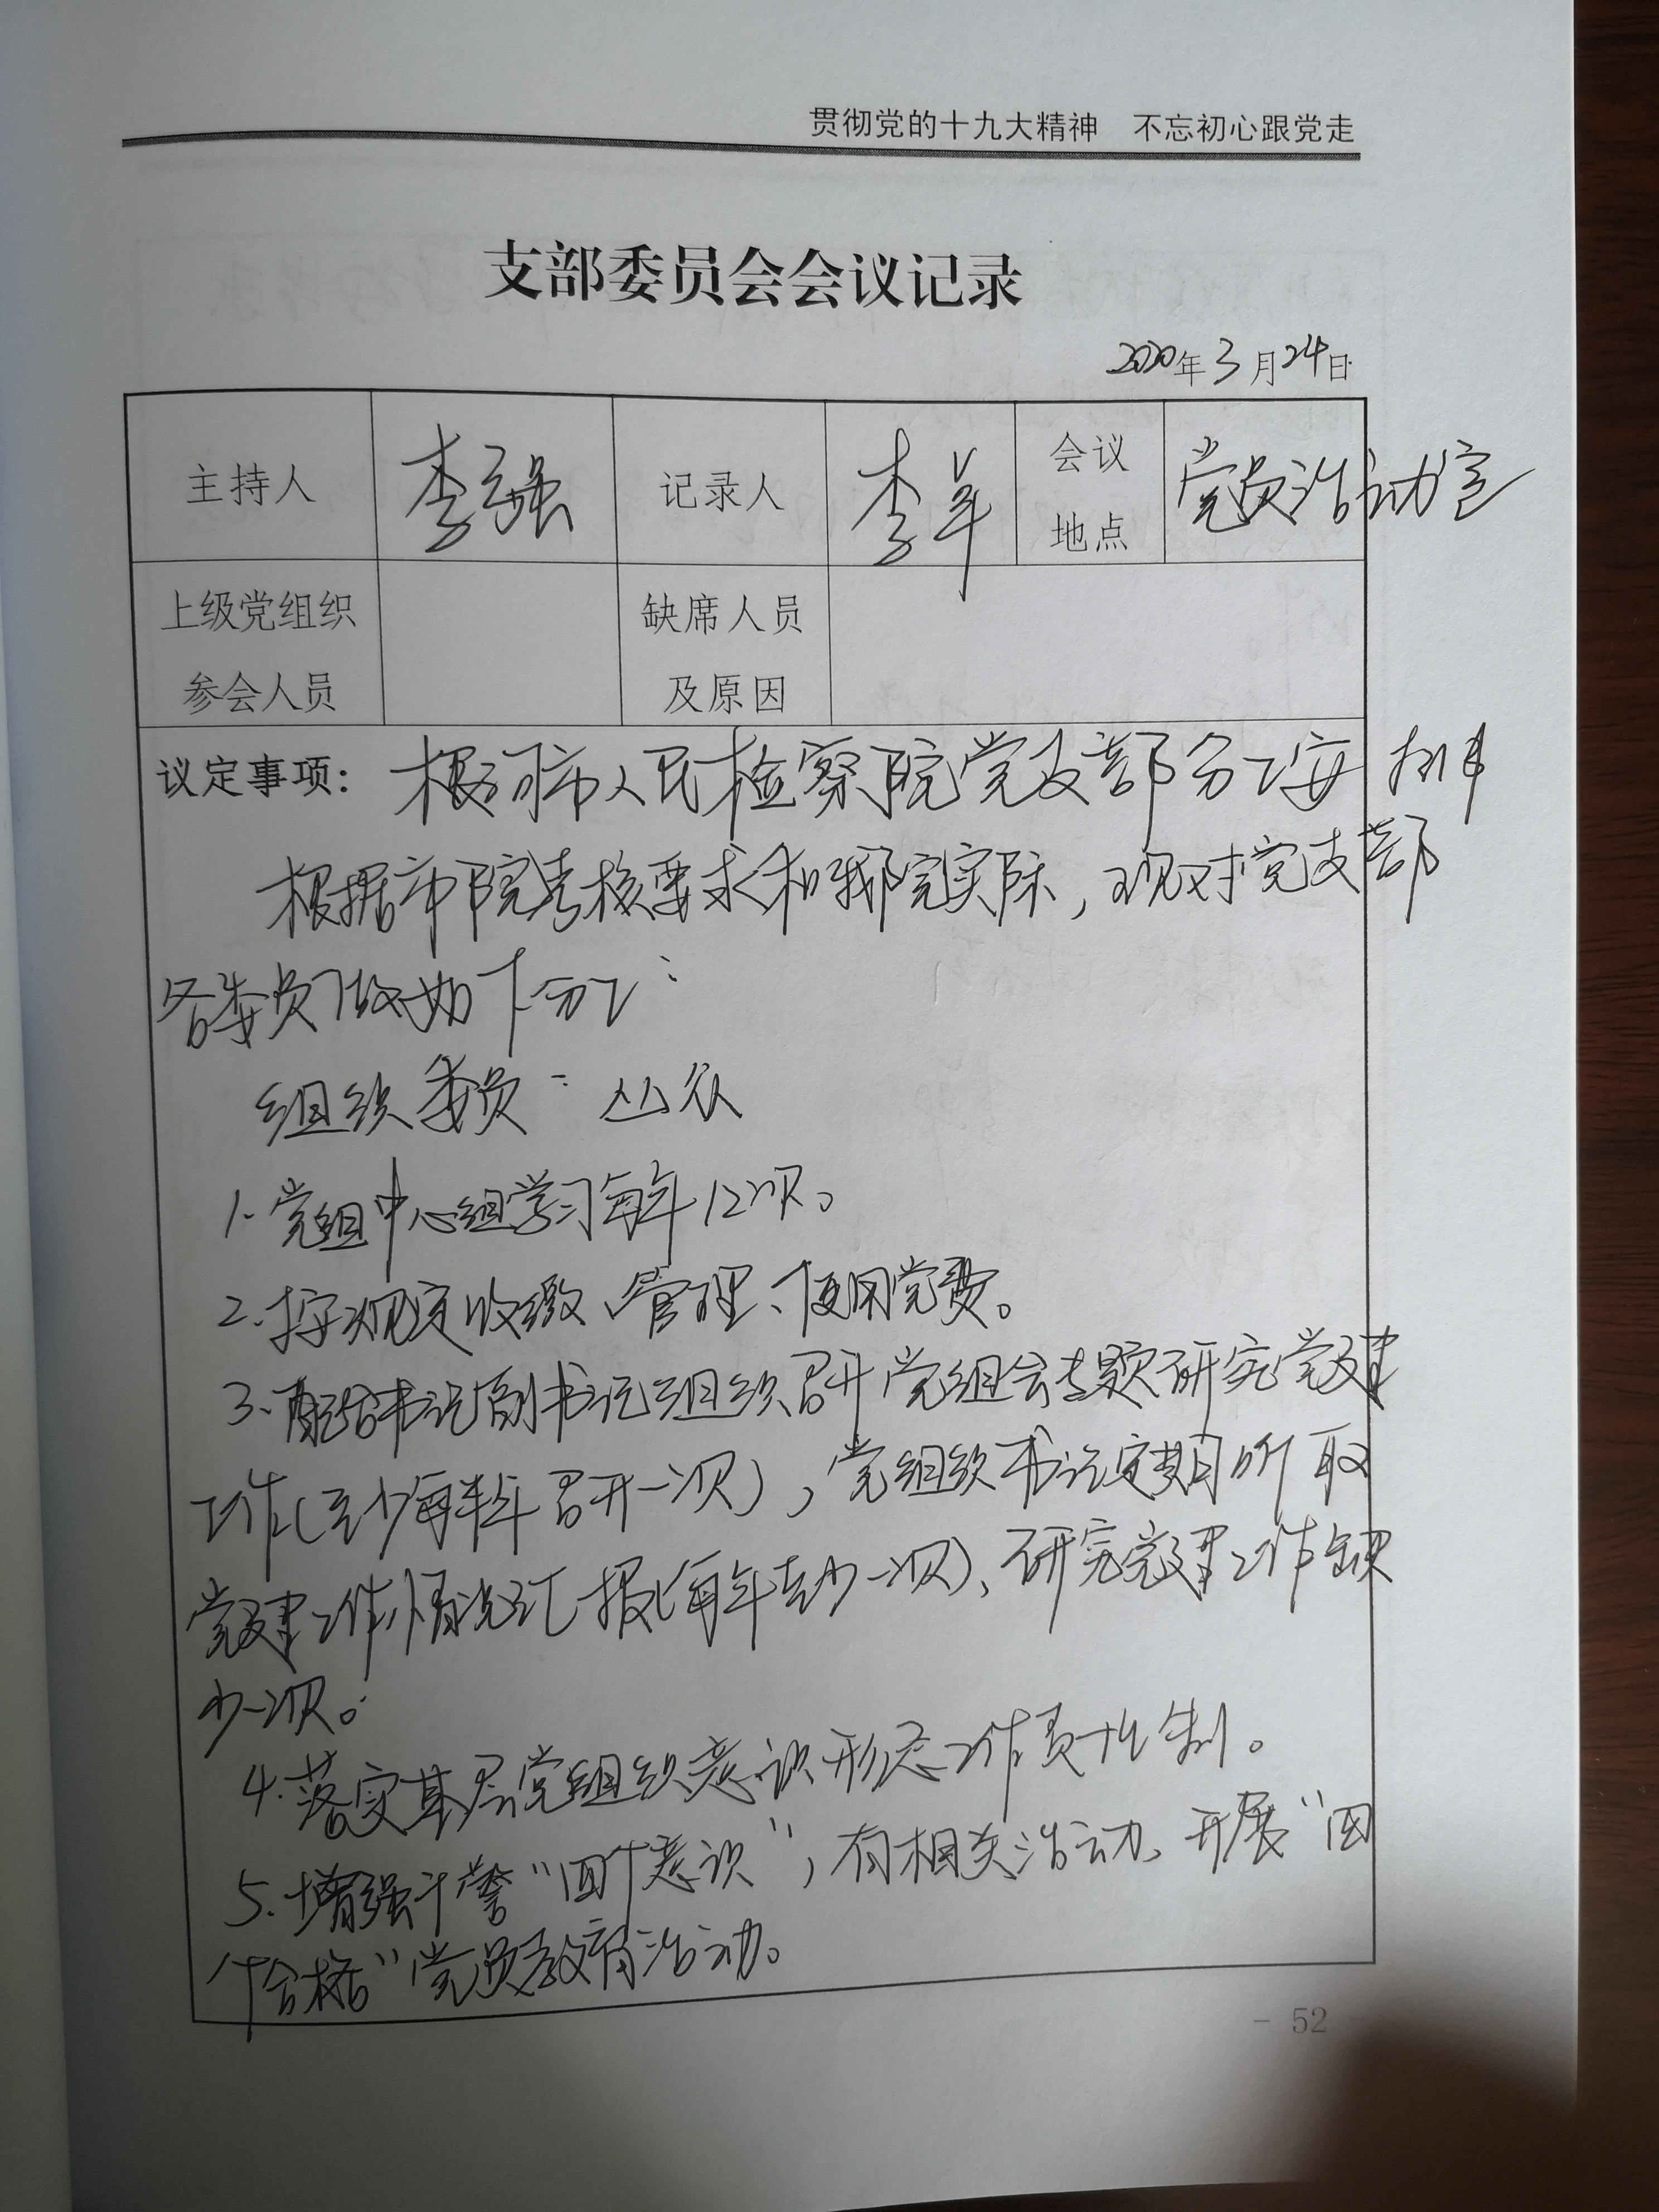 贯彻党的十九大精神 不忘初心跟党走
支部委员会会议记录
2020年3月24日
主持人 李强 记录人 李 会议地点 党员活动室
上级党组织参会人员 缺席人员及原因
议定事项: 根河市人民检察院党支部分工安排
根据市院考核要求和我院实际,现对党支部
各委员做如下分工:
组织委员: 丛众
1.党组中心组学习每年12次。
2.按规定收缴、管理、使用党费。
3.配合书记副书记组织召开党组会专题研究党建
工作(至少每半年召开一次),党组织书记定期听取
党建工作情况汇报(每年至少一次)、研究党建工作
少一次。
4.落实基层党组织意识形态工作责任制。
5.增强干警“四个意识”,有相关活动、开展“四
个合格”党员教育活动。
- 52